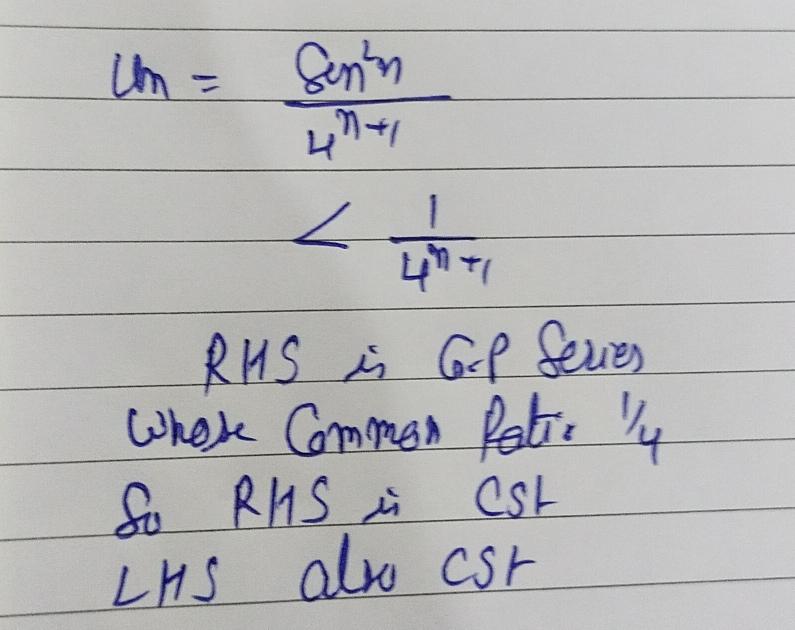 Un = Sin²n
4^(n+1)
< 1
4^(n+1)
RHS is G.P Series
Whose Common Ratio 1/4
So RHS is CSt
LHS also CSt